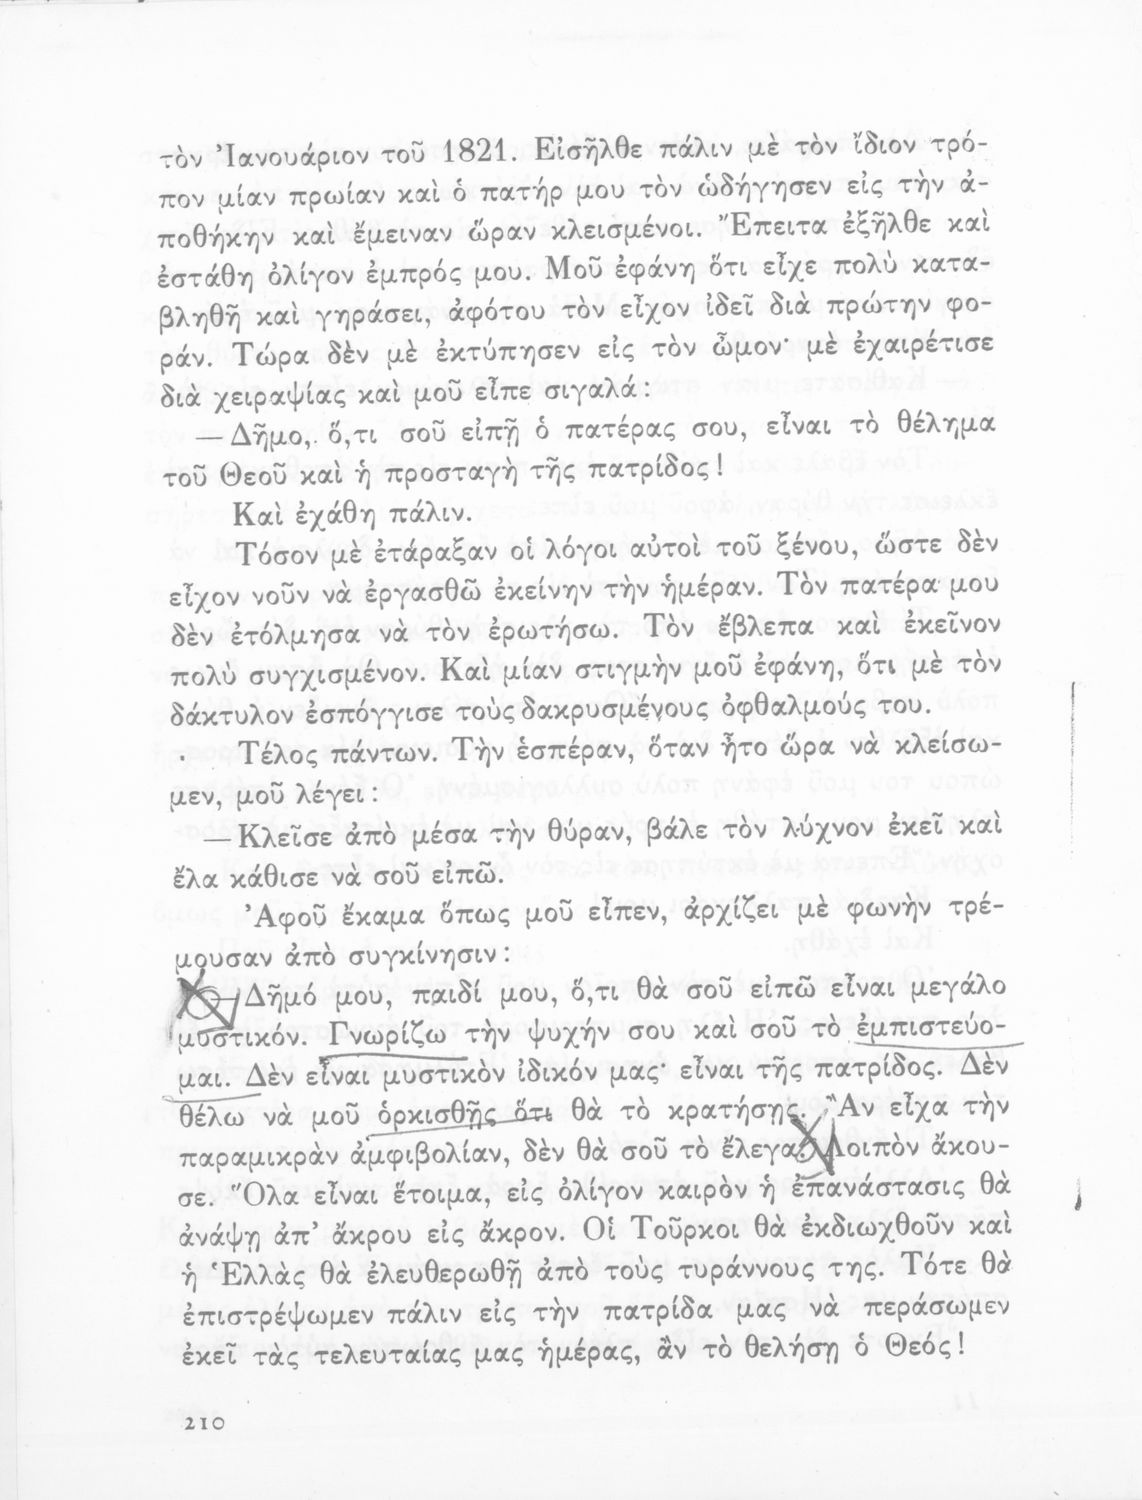 τὸν Ἰανουάριον τοῦ 1821. Εἰσῆλθε πάλιν μὲ τὸν ἴδιον τρό-
πον μίαν πρωίαν καὶ ὁ πατήρ μου τὸν ὡδήγησεν εἰς τὴν ἀ-
ποθήκην καὶ ἔμειναν ὥραν κλεισμένοι. Ἔπειτα ἐξῆλθε καὶ
ἐστάθη ὀλίγον ἐμπρός μου. Μοῦ ἐφάνη ὅτι εἶχε πολὺ κατα-
βληθῆ καὶ γηράσει, ἀφότου τὸν εἶχον ἰδεῖ διὰ πρώτην φο-
ράν. Τώρα δὲν μὲ ἐκτύπησεν εἰς τὸν ὦμον· μὲ ἐχαιρέτισε
διὰ χειραψίας καὶ μοῦ εἶπε σιγαλά:
— Δῆμο, ὅ,τι σοῦ εἰπῇ ὁ πατέρας σου, εἶναι τὸ θέλημα
τοῦ Θεοῦ καὶ ἡ προσταγὴ τῆς πατρίδος!
Καὶ ἐχάθη πάλιν.
Τόσον μὲ ἐτάραξαν οἱ λόγοι αὐτοὶ τοῦ ξένου, ὥστε δὲν
εἶχον νοῦν νὰ ἐργασθῶ ἐκείνην τὴν ἡμέραν. Τὸν πατέρα μου
δὲν ἐτόλμησα νὰ τὸν ἐρωτήσω. Τὸν ἔβλεπα καὶ ἐκεῖνον
πολὺ συγχισμένον. Καὶ μίαν στιγμὴν μοῦ ἐφάνη, ὅτι μὲ τὸν
δάκτυλον ἐσπόγγισε τοὺς δακρυσμένους ὀφθαλμούς του.
Τέλος πάντων. Τὴν ἑσπέραν, ὅταν ἦτο ὥρα νὰ κλείσω-
μεν, μοῦ λέγει:
— Κλεῖσε ἀπὸ μέσα τὴν θύραν, βάλε τὸν λύχνον ἐκεῖ καὶ
ἔλα κάθισε νὰ σοῦ εἰπῶ.
Ἀφοῦ ἔκαμα ὅπως μοῦ εἶπεν, ἀρχίζει μὲ φωνὴν τρέ-
μουσαν ἀπὸ συγκίνησιν:
— Δῆμό μου, παιδί μου, ὅ,τι θὰ σοῦ εἰπῶ εἶναι μεγάλο
μυστικόν. Γνωρίζω τὴν ψυχήν σου καὶ σοῦ τὸ ἐμπιστεύο-
μαι. Δὲν εἶναι μυστικὸν ἰδικόν μας· εἶναι τῆς πατρίδος. Δὲν
θέλω νὰ μοῦ ὁρκισθῇς ὅτι θὰ τὸ κρατήσῃς. Ἂν εἶχα τὴν
παραμικρὰν ἀμφιβολίαν, δὲν θὰ σοῦ τὸ ἔλεγα. Λοιπὸν ἄκου-
σε. Ὅλα εἶναι ἕτοιμα, εἰς ὀλίγον καιρὸν ἡ ἐπανάστασις θὰ
ἀνάψῃ ἀπ’ ἄκρου εἰς ἄκρον. Οἱ Τοῦρκοι θὰ ἐκδιωχθοῦν καὶ
ἡ Ἑλλὰς θὰ ἐλευθερωθῇ ἀπὸ τοὺς τυράννους της. Τότε θὰ
ἐπιστρέψωμεν πάλιν εἰς τὴν πατρίδα μας νὰ περάσωμεν
ἐκεῖ τὰς τελευταίας μας ἡμέρας, ἂν τὸ θελήσῃ ὁ Θεός!
210